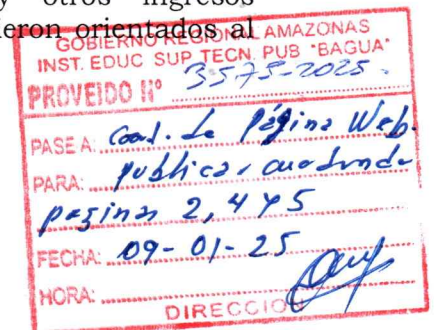 y otros ingresos
ieron orientados al
GOBIERNO REGIONAL AMAZONAS
INST. EDUC. SUP. TECN. PUB "BAGUA"
PROVEIDO Nº 3575-2025.
PASE A: Coord. de Página Web.
PARA: publicar cuadro de
paginas 2, 4 y 5
FECHA: 09-01-25
HORA:
DIRECCION